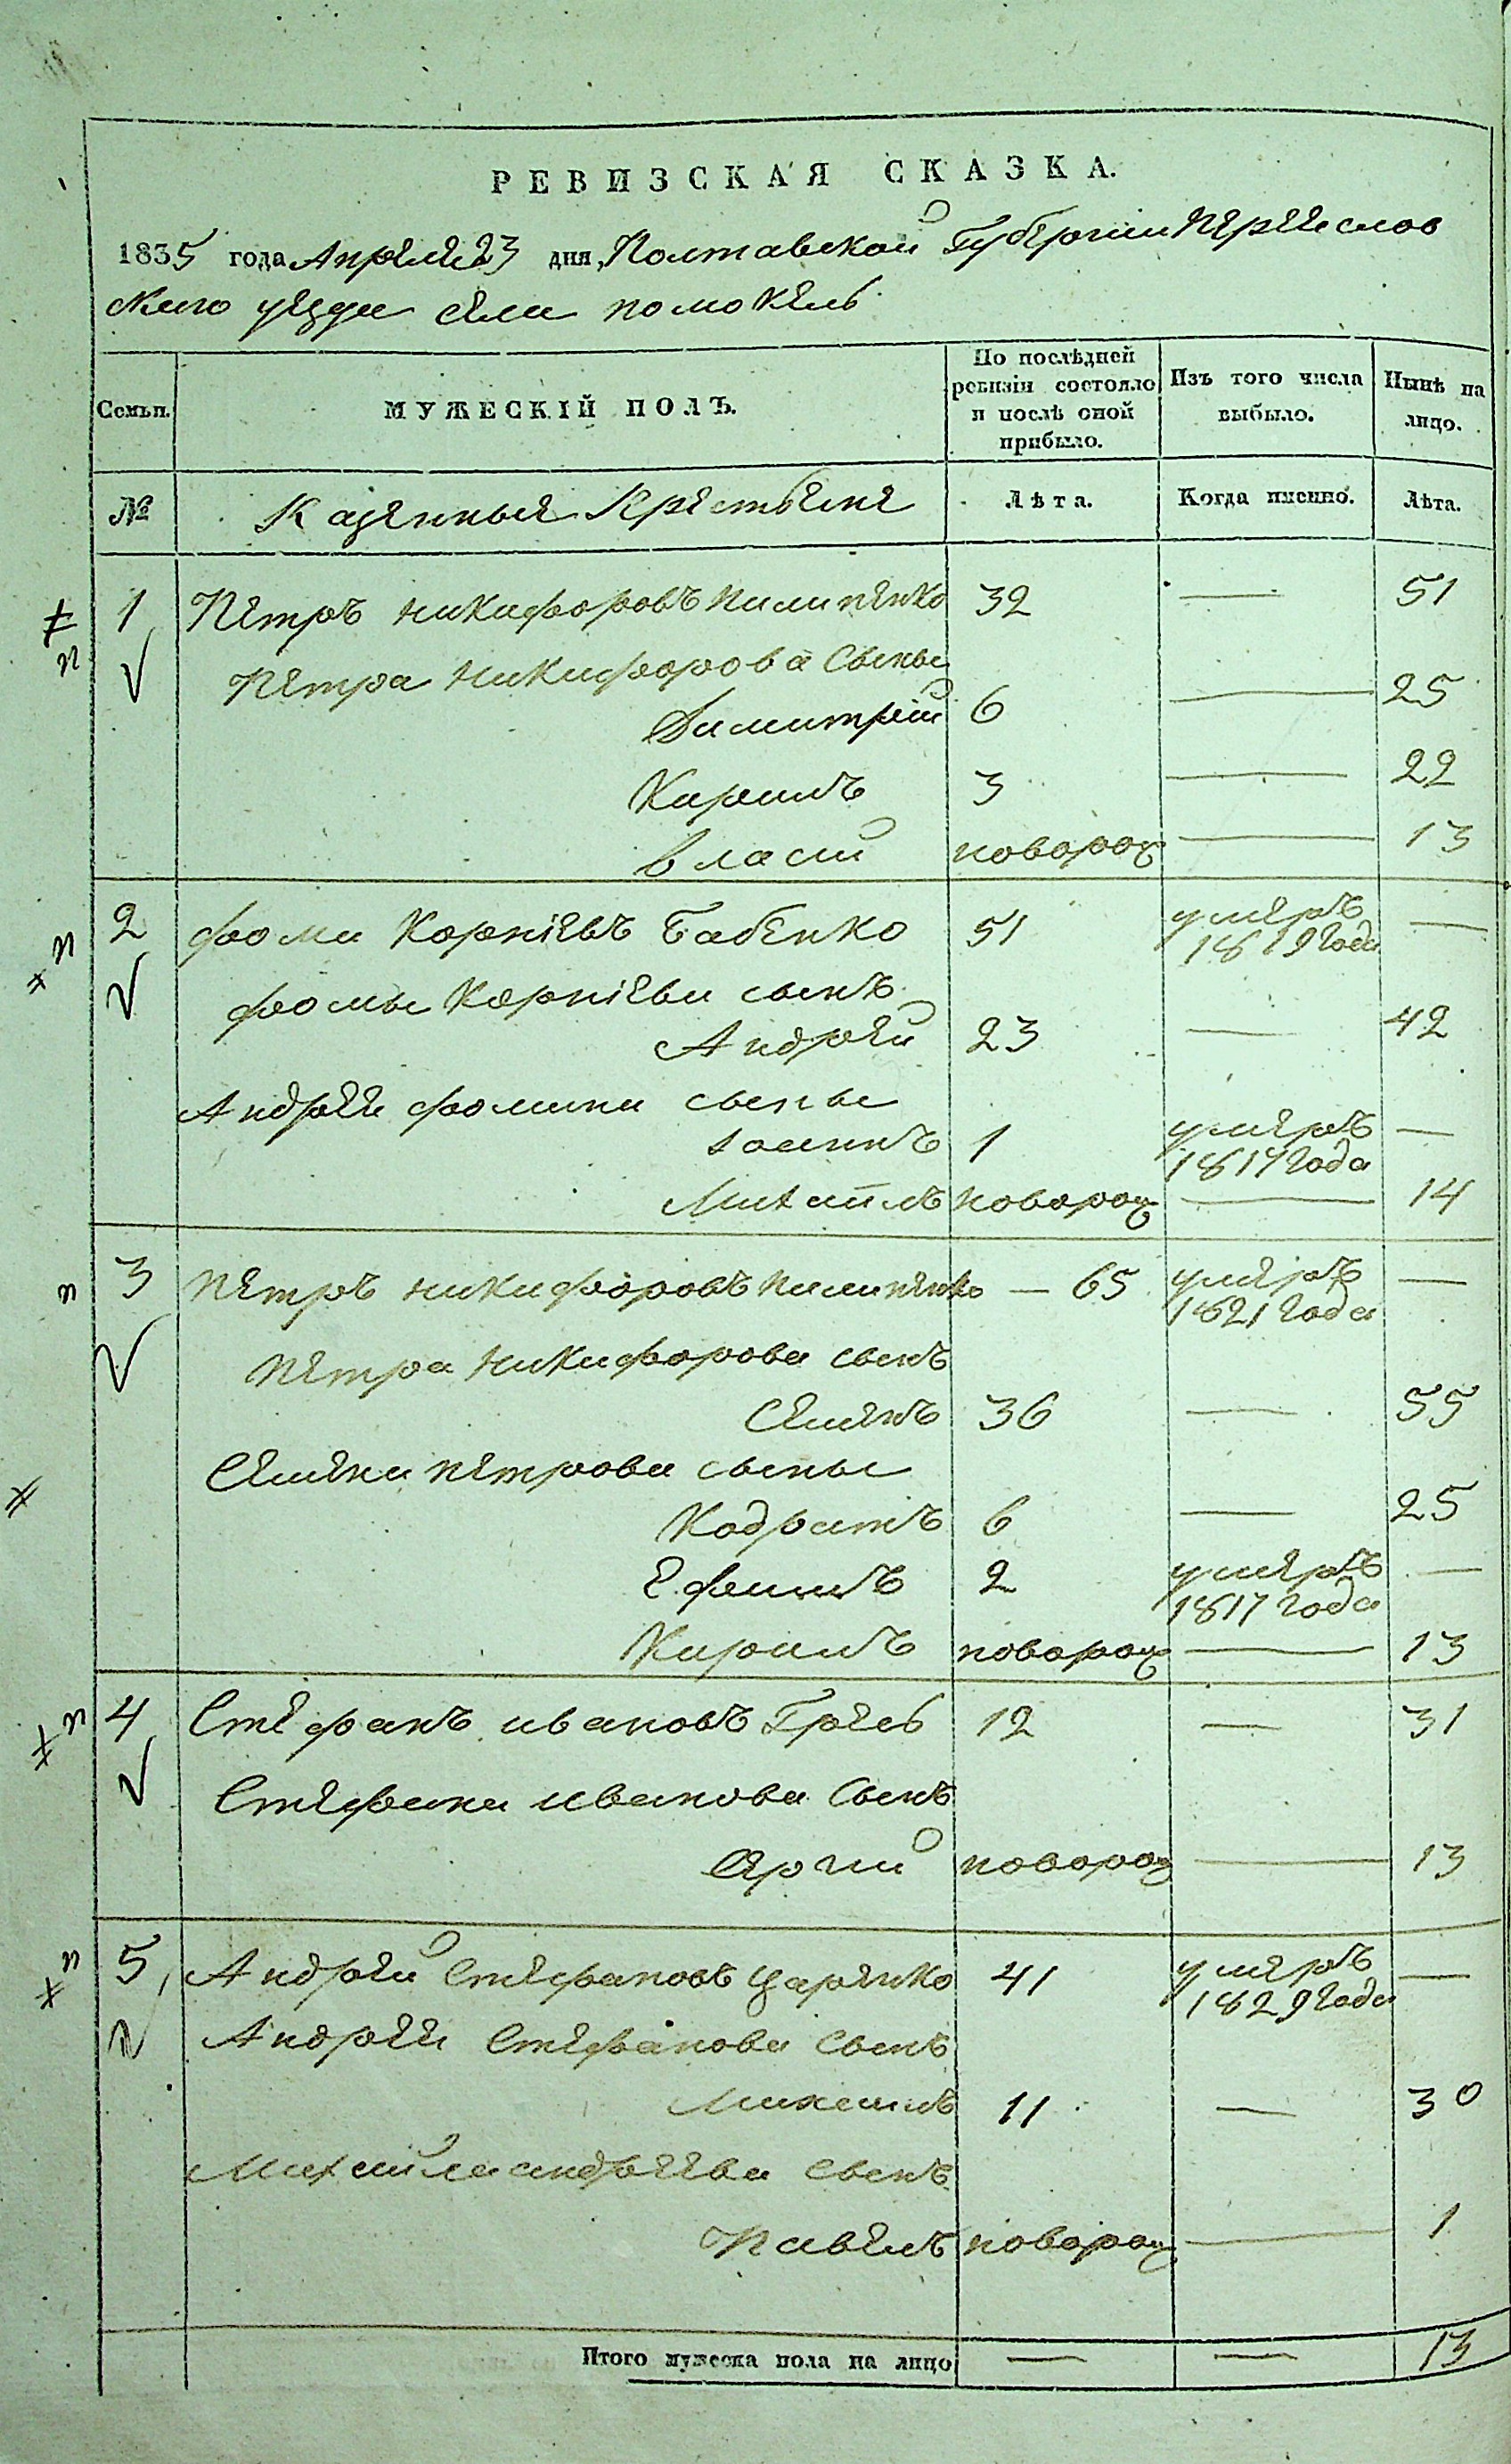 РЕВИЗСКАЯ СКАЗКА.
1835 года Апреля 23 дня, Полтавской Губернии Переяслов
скаго уезда села Помокель
Семьи. МУЖЕСКІЙ ПОЛЪ. По послѣдней ревизіи состояло и послѣ оной прибыло. Изъ того числа выбыло. Нынѣ на лицо.
№ Казенные Крестьяне Лѣта. Когда именно. Лѣта.
1 Петръ Никифоровъ Пилипенко 32 — 51
Петра Никифорова сыны
Димитрій 6 — 25
Кирилъ 3 — 22
Власий новорож — 13
2 Фома Корніевъ Бабенко 51 умеръ 1819 года —
Фомы Корніева сынъ
Андрей 23 — 42
Андрея Фомина сыны
Іоаннъ 1 умеръ 1817 года —
Михайлъ новорож — 14
3 Петръ Никифоровъ Пилипенко — 65 умеръ 1821 года —
Петра Никифорова сынъ
Семенъ 36 — 55
Семена Петрова сыны
Кодратъ 6 — 25
Ефимъ 2 умеръ 1817 года —
Кирилъ новорож — 13
4 Стефанъ Ивановъ 12 — 31
Стефана Иванова сынъ
Сергий новорож — 13
5 Андрей Стефановъ Царенко 41 умеръ 1829 года —
Андрея Стефанова сынъ
Михаилъ 11 — 30
Михайла Андреева сынъ
Павелъ новорож — 1
Итого мужеска пола на лицо — — 13